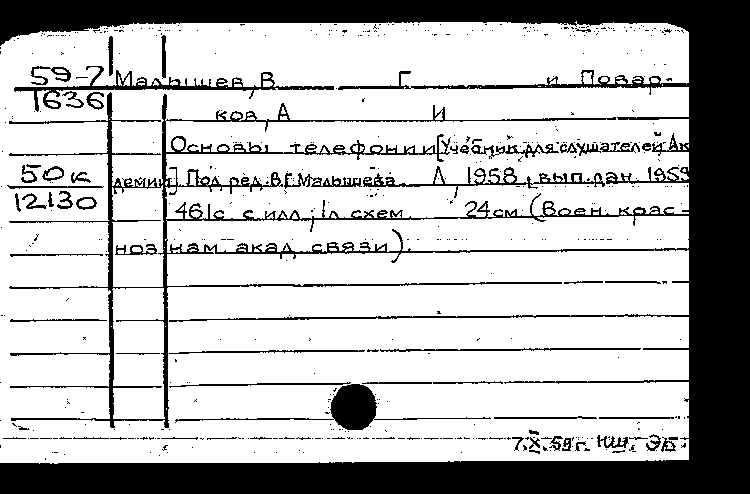 59-7 Малышев, В Г и Повар-
1636
ков, А И
Основы телефонии [Учебник для слушателей Ак
50к демии]. Под ред. В.Г. Малышева. Л, 1958, вып. дан. 1959
12130
461с. с илл.; 1л схем. 24см (Воен. крас-
нознам. акад. связи).
7.X.59г. ЭБ.